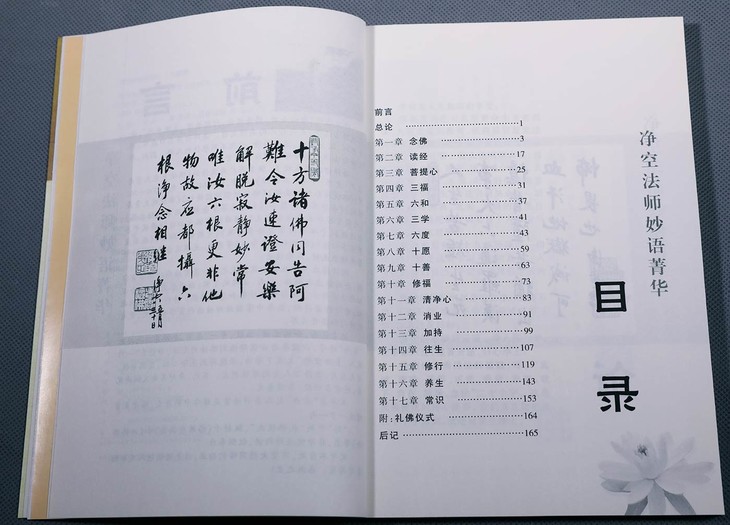 十方諸佛同告阿
難令汝速證安樂
解脫寂靜妙常
唯汝六根更非他
物故应都攝六
根淨念相继
净空法师妙语菁华
目录
前言
总论 ………………1
第一章 念佛 ………………3
第二章 读经 ………………17
第三章 菩提心 ………………25
第四章 三福 ………………31
第五章 六和 ………………37
第六章 三学 ………………41
第七章 六度 ………………43
第八章 十愿 ………………59
第九章 十善 ………………63
第十章 修福 ………………73
第十一章 清净心 ………………83
第十二章 消业 ………………91
第十三章 加持 ………………99
第十四章 往生 ………………107
第十五章 修行 ………………119
第十六章 养生 ………………143
第十七章 常识 ………………153
附:礼佛仪式 ………………164
后记 ………………165